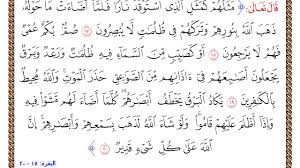 قَالَ تَعَالَى: ﴿ مَثَلُهُمْ كَمَثَلِ الَّذِي اسْتَوْقَدَ نَارًا فَلَمَّا أَضَاءَتْ مَا حَوْلَهُ
ذَهَبَ اللَّهُ بِنُورِهِمْ وَتَرَكَهُمْ فِي ظُلُمَاتٍ لَا يُبْصِرُونَ ١٧ صُمٌّ بُكْمٌ عُمْيٌ
فَهُمْ لَا يَرْجِعُونَ ١٨ أَوْ كَصَيِّبٍ مِنَ السَّمَاءِ فِيهِ ظُلُمَاتٌ وَرَعْدٌ وَبَرْقٌ
يَجْعَلُونَ أَصَابِعَهُمْ فِي آذَانِهِمْ مِنَ الصَّوَاعِقِ حَذَرَ الْمَوْتِ وَاللَّهُ مُحِيطٌ
بِالْكَافِرِينَ ١٩ يَكَادُ الْبَرْقُ يَخْطَفُ أَبْصَارَهُمْ كُلَّمَا أَضَاءَ لَهُمْ مَشَوْا فِيهِ
وَإِذَا أَظْلَمَ عَلَيْهِمْ قَامُوا وَلَوْ شَاءَ اللَّهُ لَذَهَبَ بِسَمْعِهِمْ وَأَبْصَارِهِمْ إِنَّ
اللَّهَ عَلَى كُلِّ شَيْءٍ قَدِيرٌ ٢٠ ﴾
البقرة: ١٧ - ٢٠